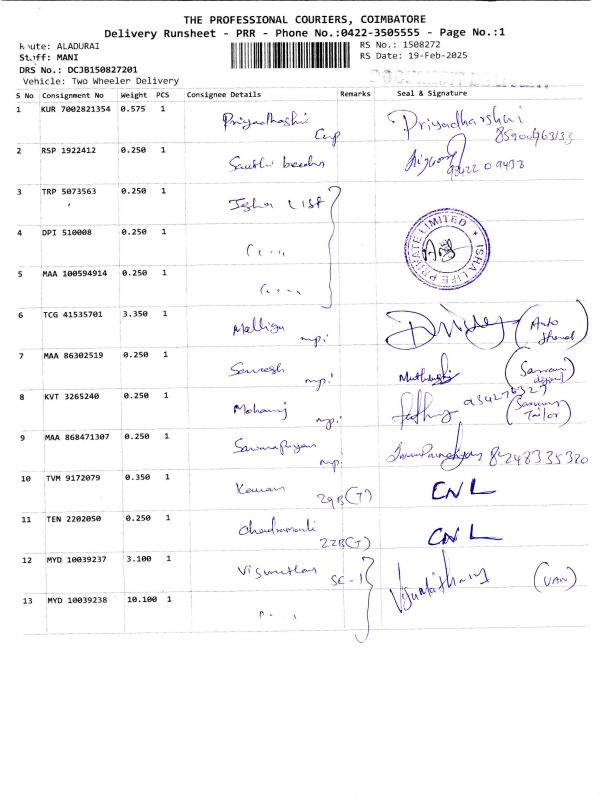 THE PROFESSIONAL COURIERS, COIMBATORE
Delivery Runsheet - PRR - Phone No.:0422-3505555 - Page No.:1
Route: ALADURAI
RS No.: 1508272
Staff: MANI
RS Date: 19-Feb-2025
DRS No.: DCJB150827201
Vehicle: Two Wheeler Delivery
S No Consignment No Weight PCS Consignee Details Remarks Seal & Signature
1 KUR 7002821354 0.575 1 Priyadharshini Priyadharshini
2 RSP 1922412 0.250 1
3 TRP 5073563 0.250 1 Isha
4 DPI 510008 0.250 1 " " "
ISHA LIFE PRIVATE LIMITED
5 MAA 100594914 0.250 1 " " "
6 TCG 41535701 3.350 1 Malliga mpi (Auto
7 MAA 86302519 0.250 1 Suresh mpi
8 KVT 3265240 0.250 1 Mohanraj mpi 934276327 Tailor)
9 MAA 868471307 0.250 1 Saranapriyan mpi 8248335320
10 TVM 9172079 0.350 1 29B(J) CNL
11 TEN 2202050 0.250 1 22B(J) CNL
12 MYD 10039237 3.100 1 SC-1 (VAN)
13 MYD 10039238 10.100 1 " "